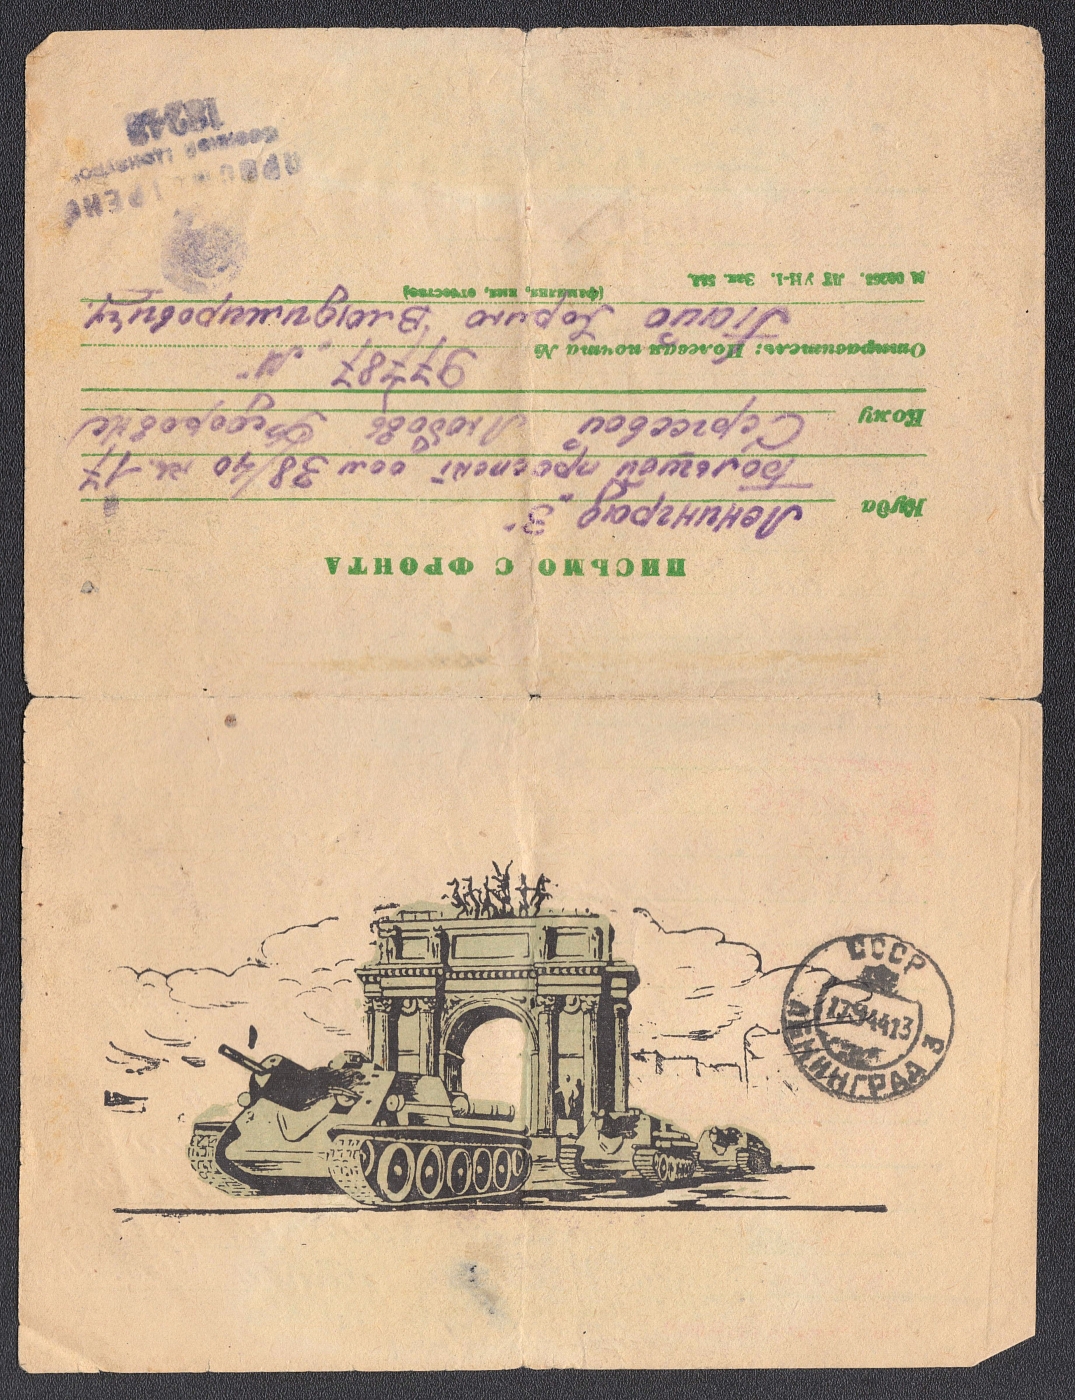 ПИСЬМО С ФРОНТА
Куда Ленинград „3"
Большой проспект дом 38/40 кв. 17
Кому Сергеевой Любовь Федоровне
Отправитель: Полевая почта № 97787 „М"
Владимировичу
(фамилия, имя, отчество)
М 00268. ЛГ УН-1. Зак.
ПРОСМОТРЕНО
Военной Цензурой
18249
СССР
17.9.44.13
ЛЕНИНГРАД 3